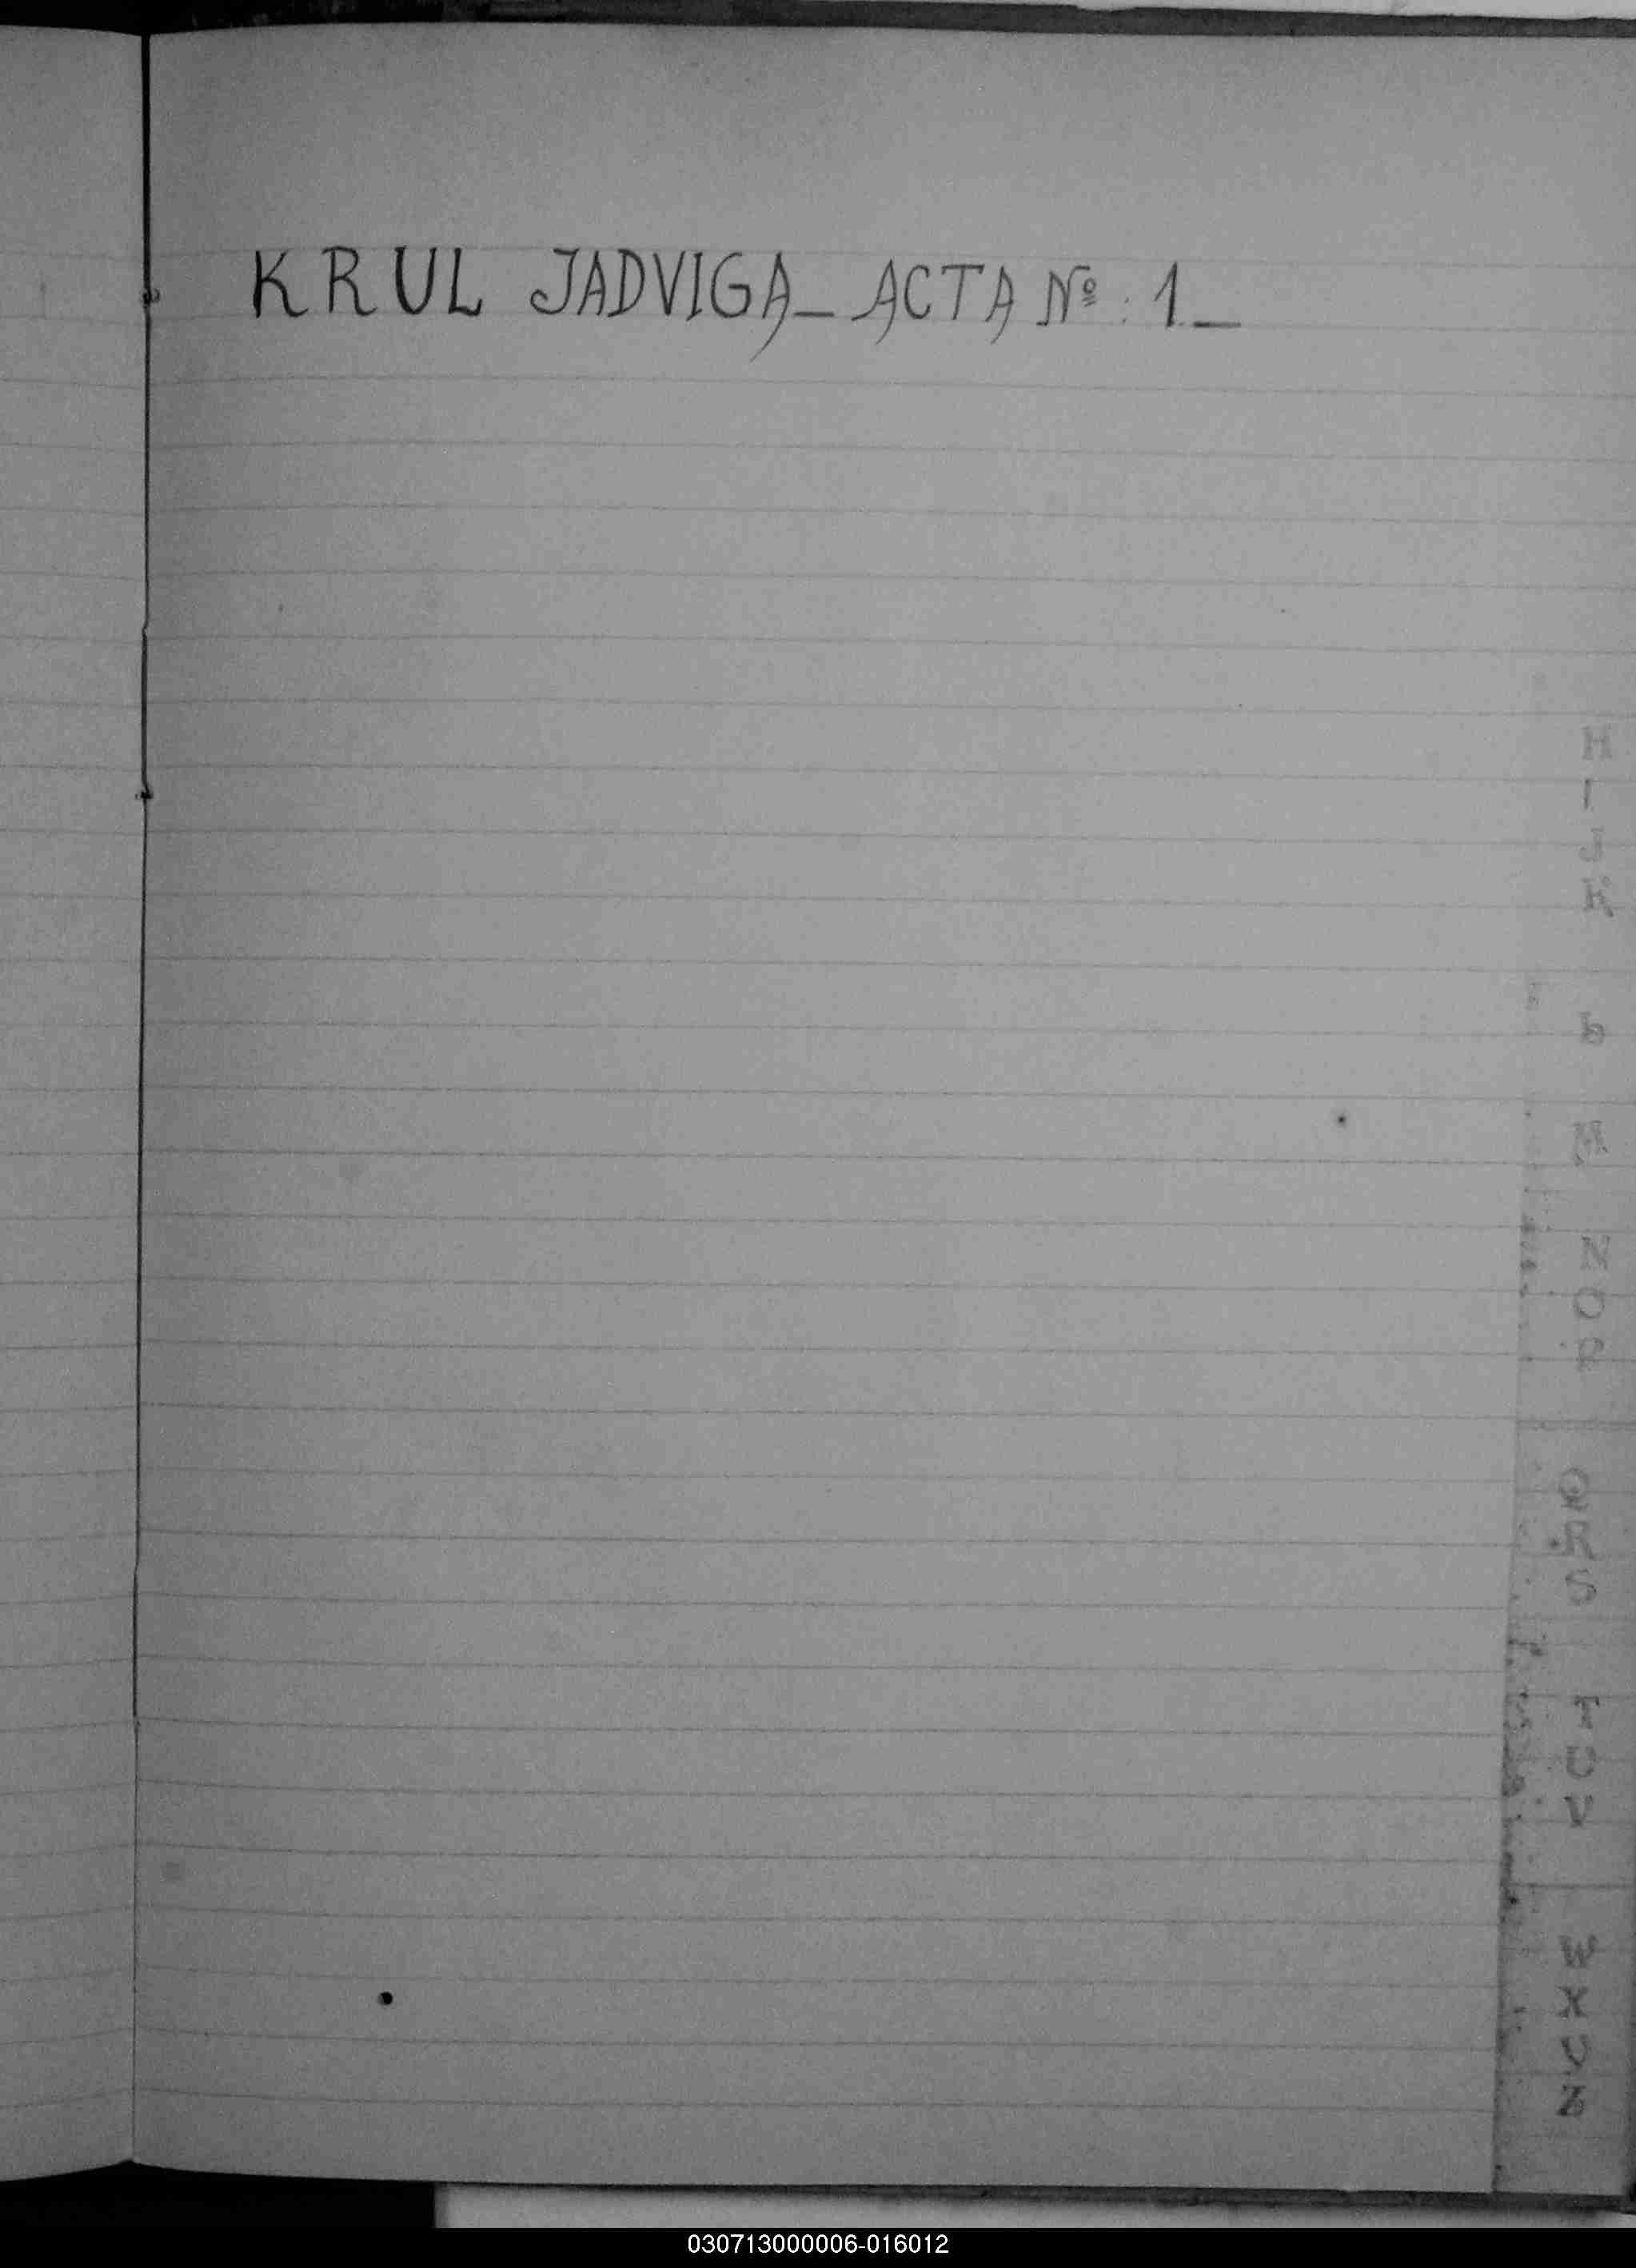 KRUL JADVIGA_ ACTA Nº: 1._
H
I
J
K
M
N
O
P
Q
R
S
T
U
V
W
X
Z
030713000006-016012